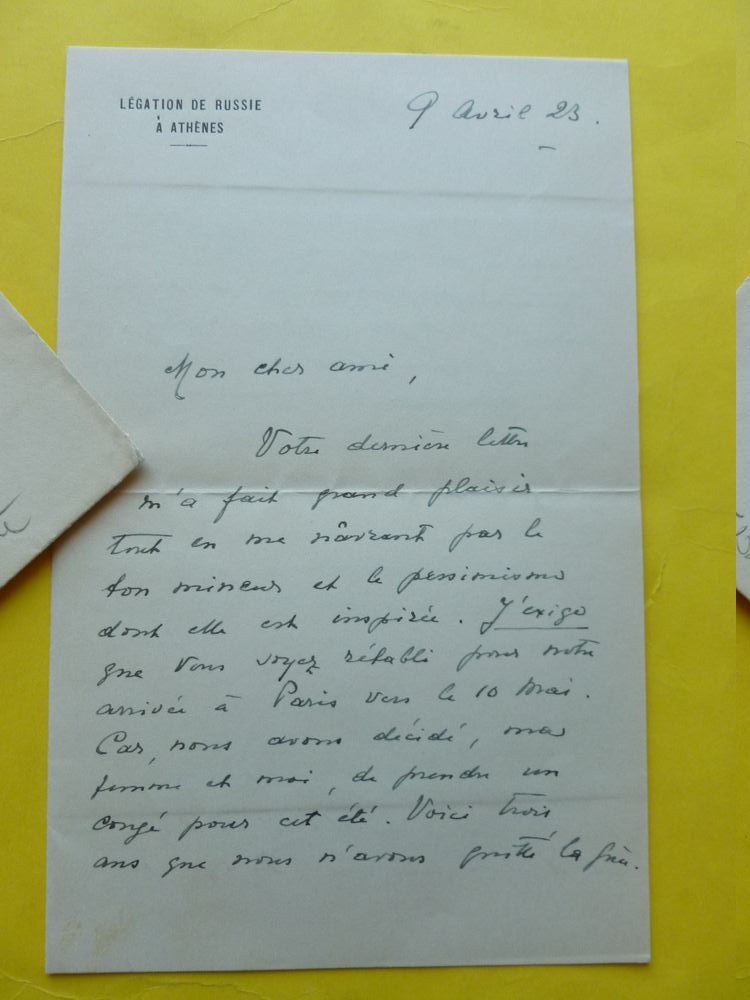 LÉGATION DE RUSSIE
À ATHÈNES
9 Avril 23.
Mon cher ami,
Votre dernière lettre
m'a fait grand plaisir
tout en me nâvrant par le
ton mineur et le pessimisme
dont elle est inspirée. J'exige
que Vous soyez rétabli pour notre
arrivée à Paris vers le 10 Mai.
Car, nous avons décidé, ma
femme et moi, de prendre un
congé pour cet été. Voici trois
ans que nous n'avons quitté la Grèce.